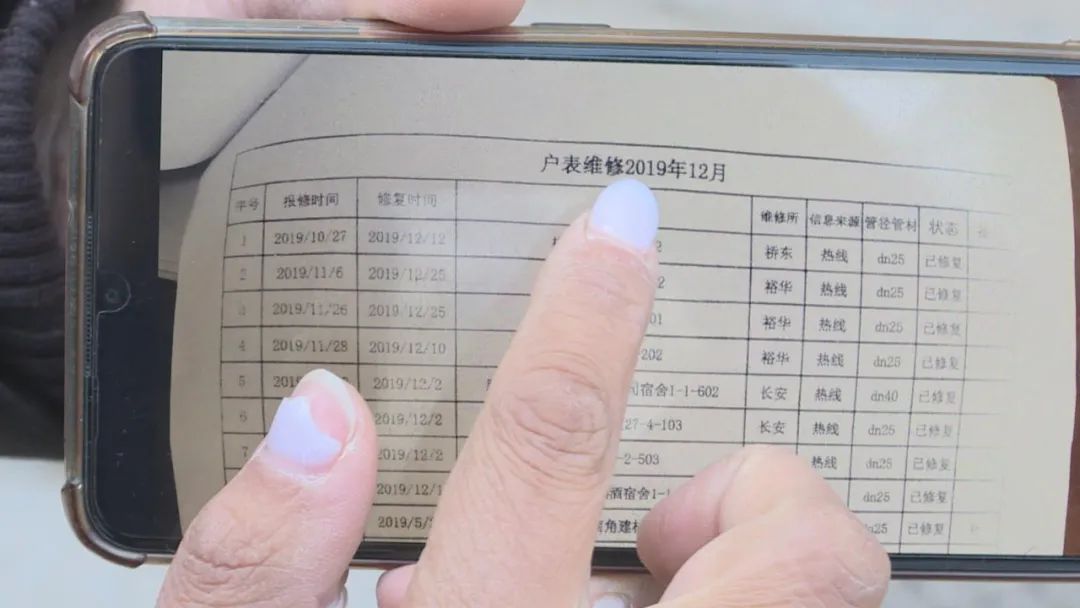 户表维修2019年12月
序号 报修时间 修复时间 维修所 信息来源 管径管材 状态
1 2019/10/27 2019/12/12 2 桥东 热线 dn25 已修复
2 2019/11/6 2019/12/25 2 裕华 热线 dn25 已修复
3 2019/11/26 2019/12/25 01 裕华 热线 dn25 已修复
4 2019/11/28 2019/12/10 -202 裕华 热线 dn25 已修复
5 2019/12/2 宿舍1-1-602 长安 热线 dn40 已修复
6 2019/12/2 27-4-103 长安 热线 dn25 已修复
7 2019/12/2 -2-503 热线 dn25 已修复
2019/12/1 酒宿舍1-1 dn25 已修复
2019/5/ 角建材 n25 已修复